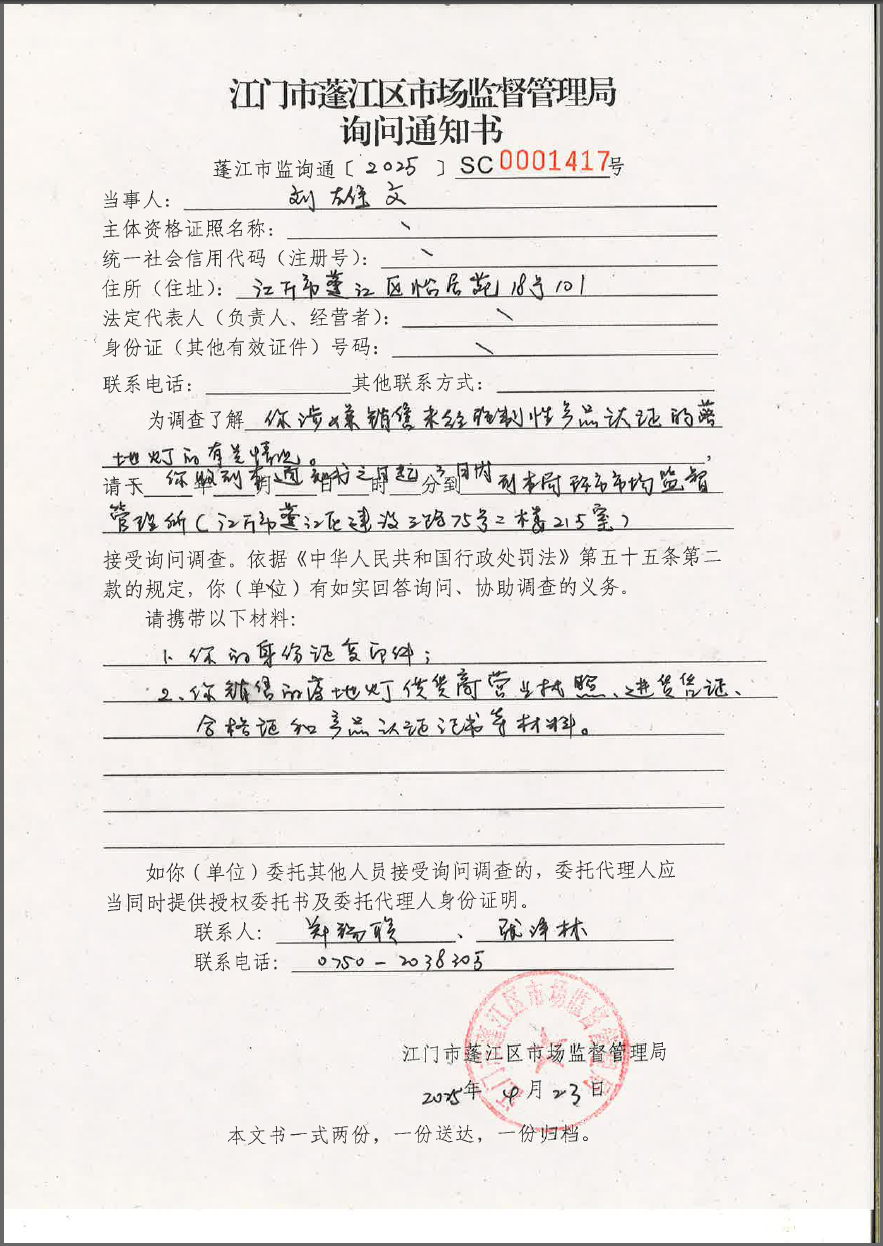 江门市蓬江区市场监督管理局
询问通知书
蓬江市监询通〔2025〕SC0001417号
当事人：刘 文
主体资格证照名称：
统一社会信用代码（注册号）：
住所（住址）：江门市蓬江区怡居苑18号101
法定代表人（负责人、经营者）：
身份证（其他有效证件）号码：
联系电话： 其他联系方式：
为调查了解 你涉嫌销售未经强制性产品认证的落
地灯的有关情况。，
请于 年 月 日 时 分到
你收到本通知书之日起 日内到本局 市场监督
管理所（江门市蓬江区建设三路75号二楼215室）
接受询问调查。依据《中华人民共和国行政处罚法》第五十五条第二
款的规定，你（单位）有如实回答询问、协助调查的义务。
请携带以下材料：
1、你的身份证复印件；
2、你销售的落地灯供货商营业执照、进货凭证、
合格证和产品认证证书等材料。
如你（单位）委托其他人员接受询问调查的，委托代理人应
当同时提供授权委托书及委托代理人身份证明。
联系人：郑 联、张泽林
联系电话：0750-2038305
江门市蓬江区市场监督管理局
2025年4月23日
本文书一式两份，一份送达，一份归档。
江门市蓬江区市场监督管理局